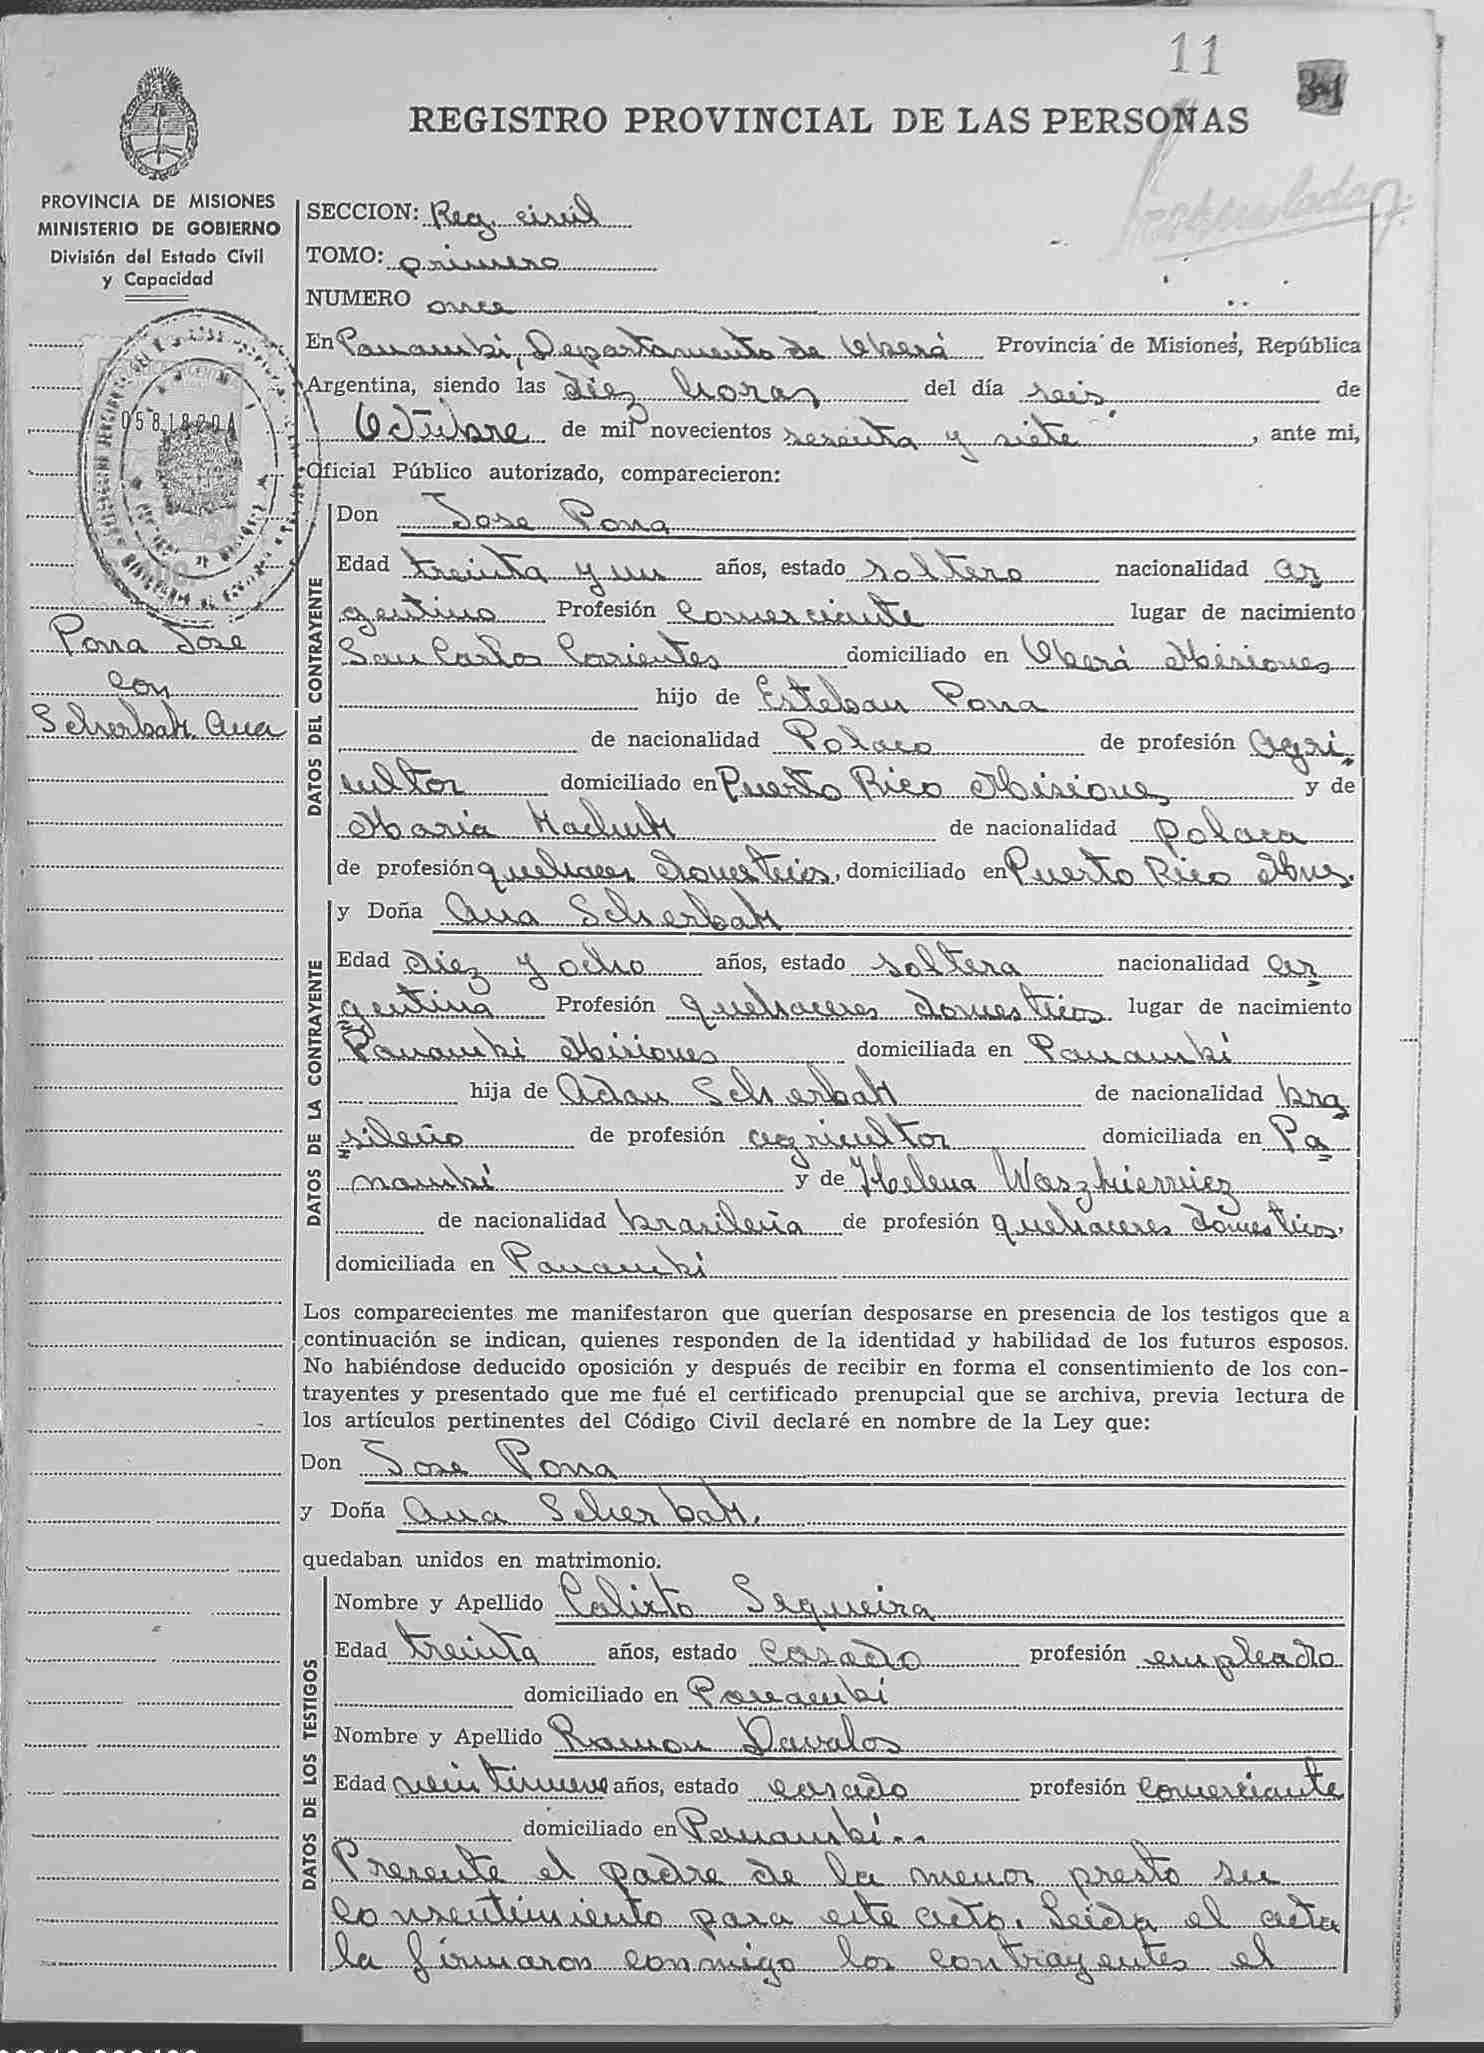 11
31
REGISTRO PROVINCIAL DE LAS PERSONAS
PROVINCIA DE MISIONES
MINISTERIO DE GOBIERNO
División del Estado Civil
y Capacidad
058182OA
Pona Jose
con
Scherbak Ana
SECCION: Reg. civil
TOMO: primero
NUMERO once
En Panambi, Departamento de Oberá Provincia de Misiones, República
Argentina, siendo las diez horas del día seis de
Octubre de mil novecientos sesenta y siete, ante mi,
Oficial Público autorizado, comparecieron:
DATOS DEL CONTRAYENTE
Don Jose Pona
Edad treinta y un años, estado soltero nacionalidad ar
gentino Profesión Comerciante lugar de nacimiento
San Carlos Corrientes domiciliado en Oberá Misiones
hijo de Esteban Pona
de nacionalidad Polaco de profesión agri
cultor domiciliado en Puerto Rico Misiones y de
Maria de nacionalidad polaca
de profesión quehaceres domesticos, domiciliado en Puerto Rico Mnes.
DATOS DE LA CONTRAYENTE
y Doña Ana Scherbak
Edad diez y ocho años, estado soltera nacionalidad ar
gentina Profesión quehaceres domesticos lugar de nacimiento
Panambi Misiones domiciliada en Panambí
hija de Adan Scherbak de nacionalidad bra
sileño de profesión agricultor domiciliada en Pa
nambí y de Helena Waszkiewiez
de nacionalidad brasileña de profesión quehaceres domesticos,
domiciliada en Panambí
Los comparecientes me manifestaron que querían desposarse en presencia de los testigos que a
continuación se indican, quienes responden de la identidad y habilidad de los futuros esposos.
No habiéndose deducido oposición y después de recibir en forma el consentimiento de los con-
trayentes y presentado que me fué el certificado prenupcial que se archiva, previa lectura de
los artículos pertinentes del Código Civil declaré en nombre de la Ley que:
Don Jose Pona
y Doña Ana Scherbak.
quedaban unidos en matrimonio.
DATOS DE LOS TESTIGOS
Nombre y Apellido Calixto Sequeira
Edad treinta años, estado casado profesión empleado
domiciliado en Panambí
Nombre y Apellido Ramon Davalos
Edad veintinueve años, estado casado profesión Comerciante
domiciliado en Panambí..
Presente el padre de la menor presto su
consentimiento para este acto. Leida el acta
la firmaron conmigo los contrayentes el